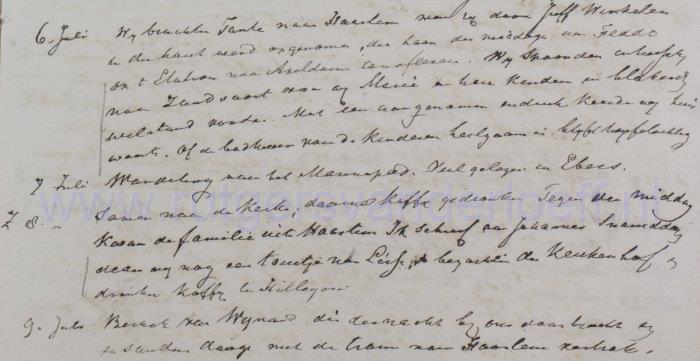 6. Juli Wij brachten Tante naar Haarlem waar zij door Juff Winkelen
in de trant werd opgenomen, die haar des middags aan Feddo
op 't Station naar Apeldoorn zou afleveren. Wij spoorden
naar Zandvoort waar wij Marie en hare kinderen in blakende
welstand vonden. Met een aangenamen indruk keerden wij huis
waarts. Of de badkuur van de Kinderen heilzaam is blijft
7 Juli Wandeling naar het Mannepad. Veel gelezen in Ebers.
Z 8. – Samen naar de Kerk, daarna koffij gedronken Tegen den middag
kwam de familie uit Haarlem Ik schreef aan Johannes 's namiddag
deden wij nog een tourtje naar Lisse, bezochten den Keukenhof &
dronken Koffij te Hillegom
9. Juli Bezoek van Wijnand die den nacht bij ons doorbracht &
en 's anderen daags met de tram naar Haarlem vertrok.
www.rutgersvanderloeff.nl